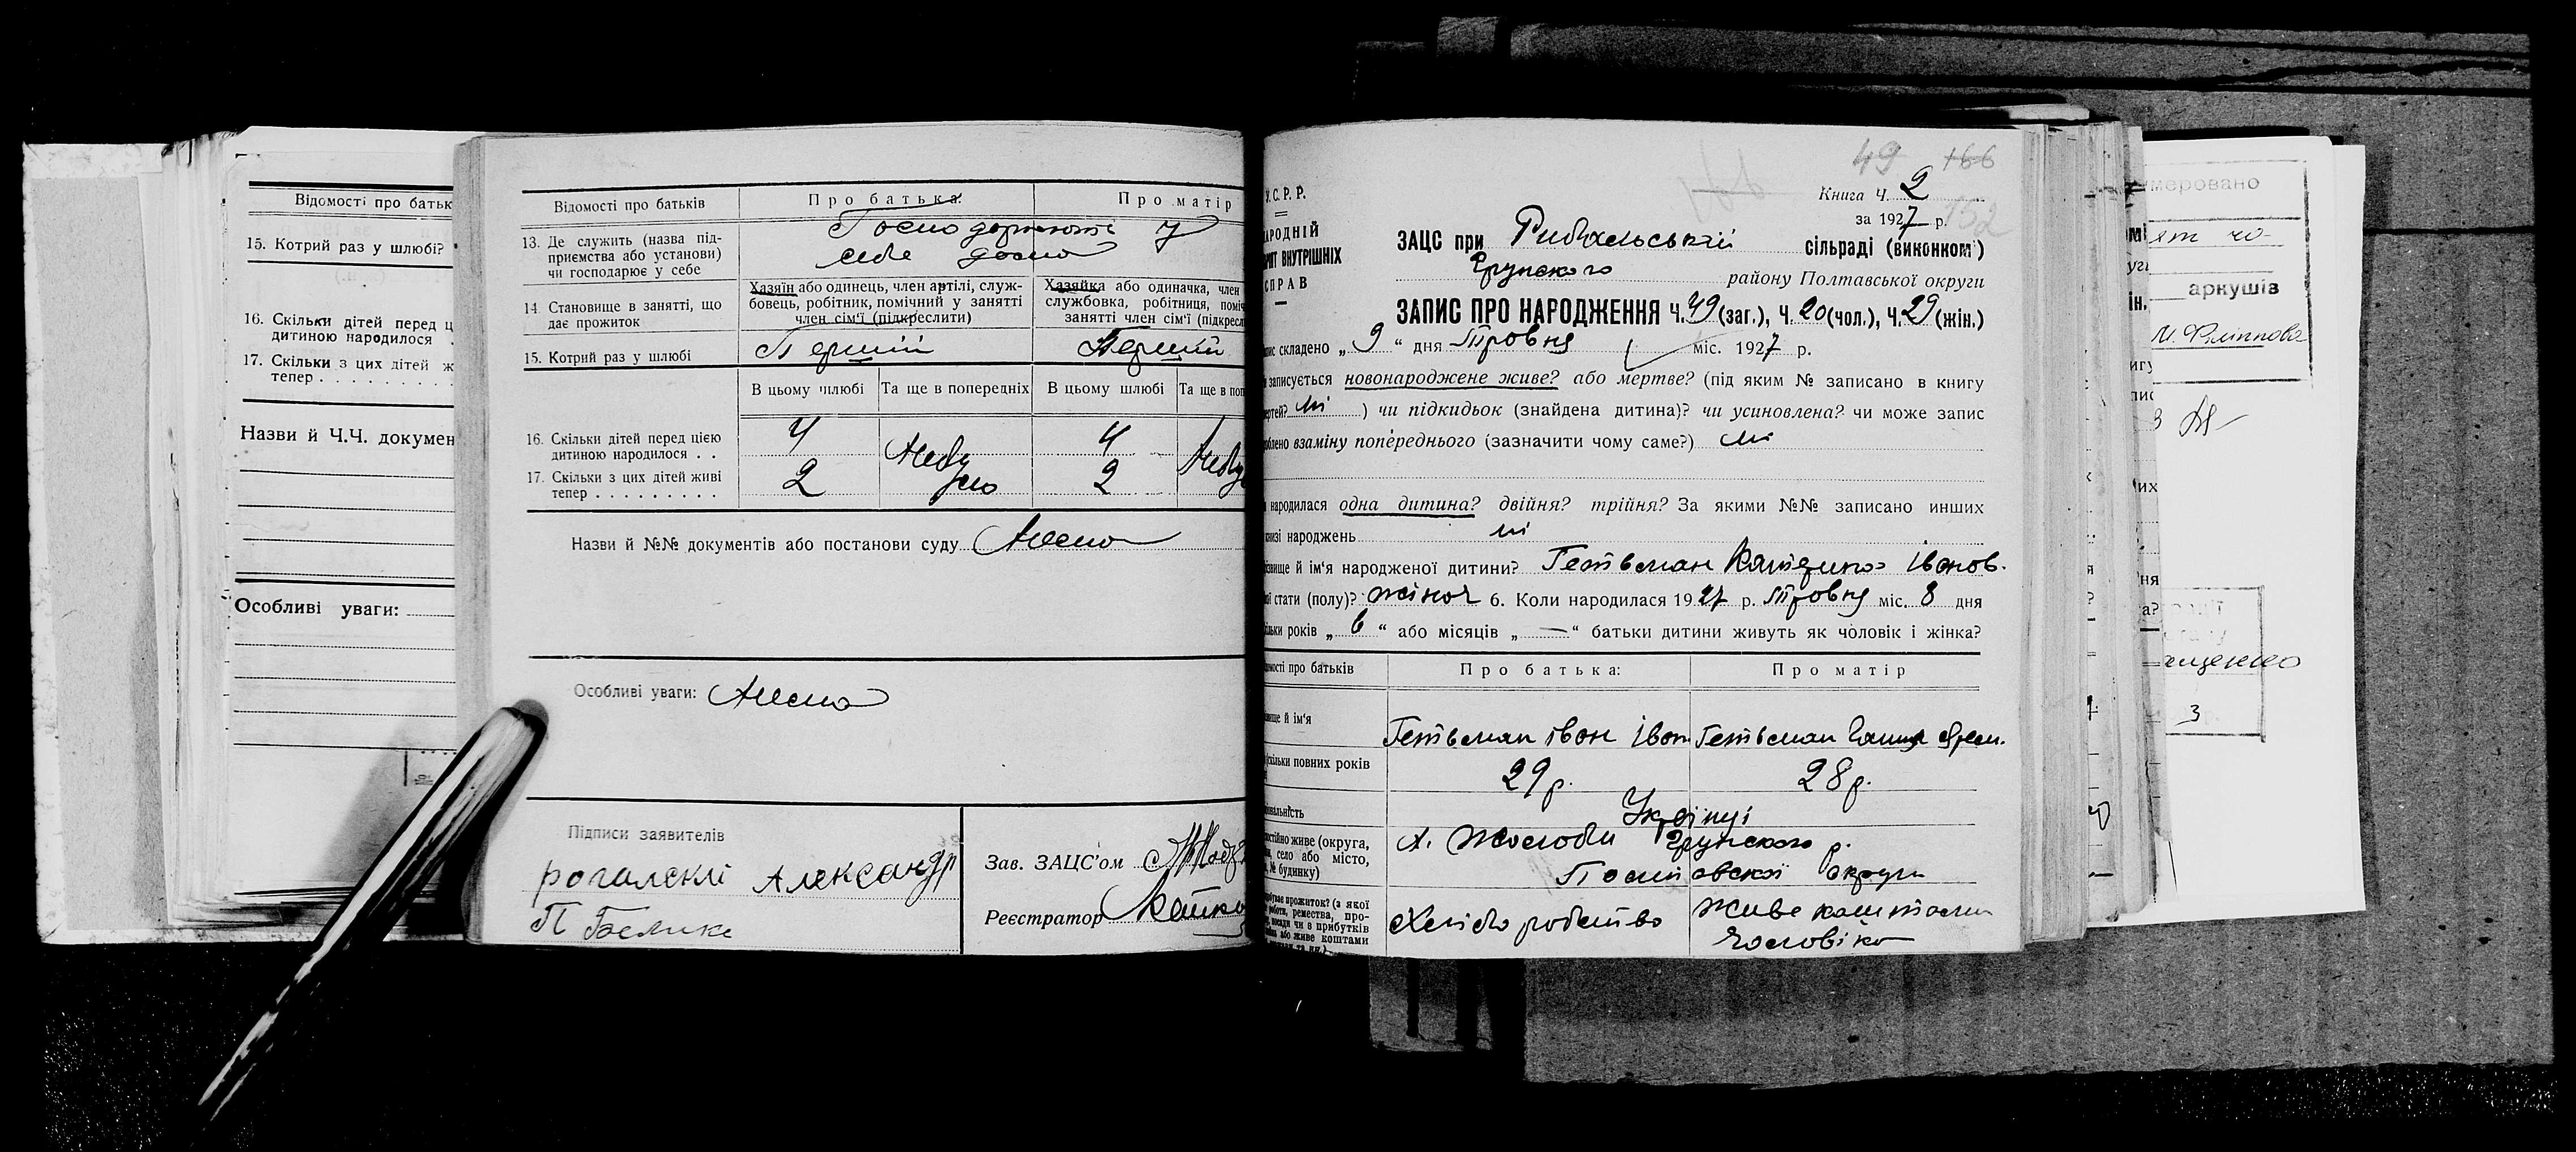 Відомості про батьк
15. Котрий раз у шлюбі?
16. Скільки дітей перед ц
дитиною народилося
17. Скільки з цих дітей ж
тепер
Назви й Ч.Ч. докумен
Особливі уваги:
Відомості про батьків
Про батька:
Про матір
13. Де служить (назва під-
приємства або установи)
чи господарює у себе
у
себе дома
14 Становище в занятті, що
дає прожиток
Хазяїн або одинець, член артілі, служ-
бовець, робітник, помічний у занятті
член сім'ї (підкреслити)
Хазяйка або одиначка, член
службовка, робітниця, поміч
занятті член сім'ї (підкресл
15. Котрий раз у шлюбі
Перший
Перший
В цьому шлюбі
Та ще в попередніх
В цьому шлюбі
Та ще в поп
16. Скільки дітей перед цією
дитиною народилося . .
4
4
Небу
ло
17. Скільки з цих дітей живі
тепер . . . . . . . . .
2
2
Назви й №№ документів або постанови суду Нема
Особливі уваги: Нема
Підписи заявителів
рогалский Александр
П Белик
Зав. ЗАЦС'ом
Реєстратор
49 166
У.С.Р.Р.
АРОДНІЙ
РІЯТ ВНУТРІШНІХ
СПРАВ
Книга Ч. 2
за 1927 р.
152
ЗАЦС при Рибальський сільраді (виконком)
Грунского району Полтавської округи
ЗАПИС ПРО НАРОДЖЕННЯ Ч. 49 (заг.), Ч. 20 (чол.), Ч. 29 (жін.)
пис складено „ 9 “ дня Травня міс. 1927 р.
записується новонароджене живе? або мертве? (під яким № записано в книгу
ертей? ні ) чи підкидьок (знайдена дитина)? чи усиновлена? чи може запис
облено взаміну попереднього (зазначити чому саме?) ні
народилася одна дитина? двійня? трійня? За якими №№ записано инших
книзі народжень ні
ізвище й ім'я народженої дитини? Гетьман Катерина Іванов.
кої стати (полу)? жіноч 6. Коли народилася 1927 р. Травня міс. 8 дня
ільки років „ 6 “ або місяців „ — “ батьки дитини живуть як чоловік і жінка?
омості про батьків
Про батька:
Про матір
ище й ім'я
Гетьман Іван Іван
Гетьман Ганна Ярем.
скільки повних років
29 р.
28 р.
іональність
Українці
остійно живе (округа,
село або місто,
№ будинку)
х. Жолоби Грунского р.
Полтавскої Округи
прожиток? (з якої
роботи, ремества, про-
посади чи в прибутків
або живе коштами
Хліборобство
Живе коштами
чоловіка
меровано
аркушів
М. Філіппова
3